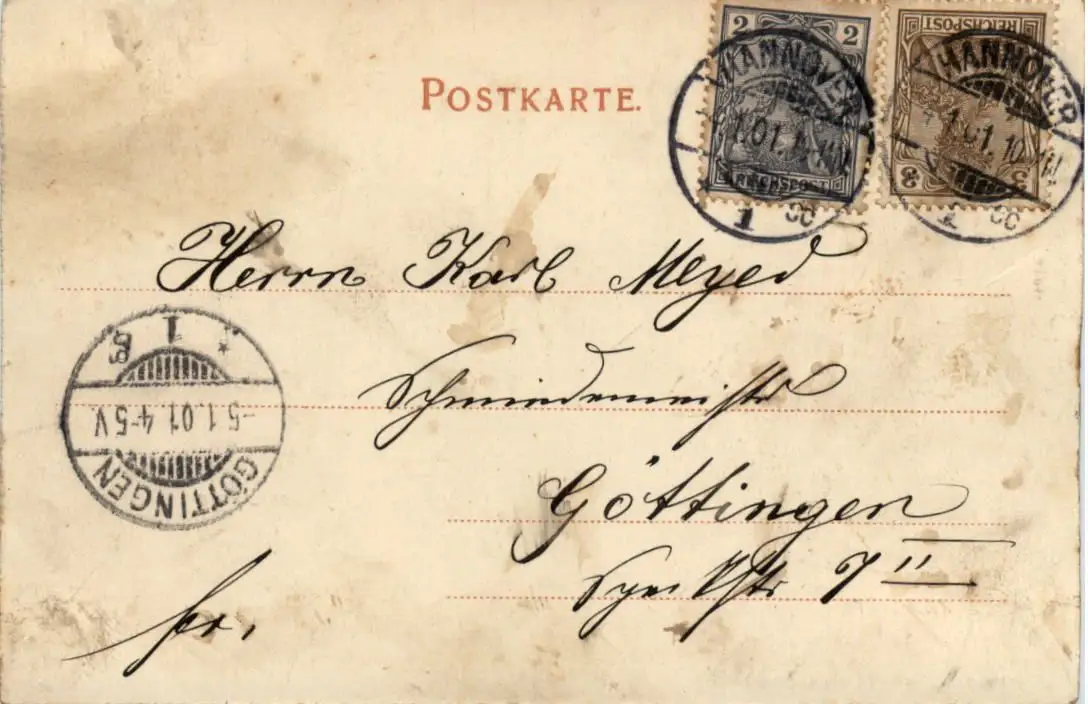 POSTKARTE.
2 2
REICHSPOST
REICHSPOST
3 3
HANNOVER
1.01.
1 cc
HANNOVER
4.1.01. 10-11 N.
1 cc
Herrn Karl Meyer
Schmiedemeister
Göttingen
str. 7 II
fr.
GÖTTINGEN
-5.1.01. 4-5V.
1